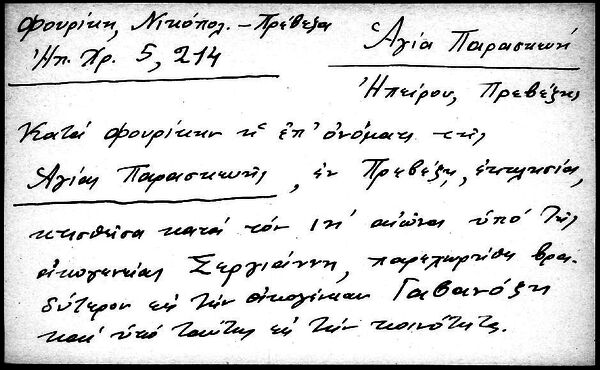 Φουρίκη, Νικόπολ. – Πρέβεζα
Ἠπ. Χρ. 5, 214
Ἁγία Παρασκευή
Ἠπείρου, Πρεβέζης
Κατά Φουρίκην ἡ ἐπ' ὀνόματι τῆς
Ἁγίας Παρασκευῆς, ἐν Πρεβέζῃ, ἐκκλησία,
κτισθεῖσα κατά τόν ιη' αἰῶνα ὑπό τῆς
οἰκογενείας Σεργιάννη, παρεχωρήθη βρα-
δύτερον εἰς τήν οἰκογένειαν Γαβανόζη
καί ὑπό ταύτης εἰς τήν κοινότητα.